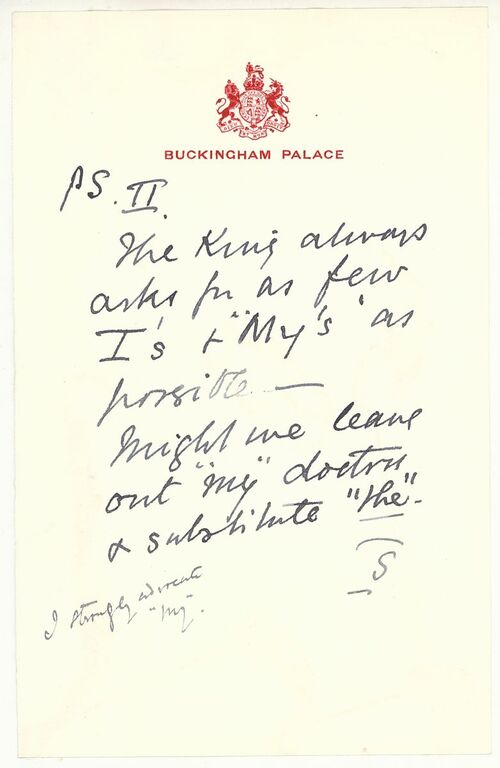 BUCKINGHAM PALACE
PS. II.
The King always
asks for as few
I's & "My's" as
possible —
Might we leave
out "my" doctors
& substitute "the".
(S
I strongly advocate
"my".